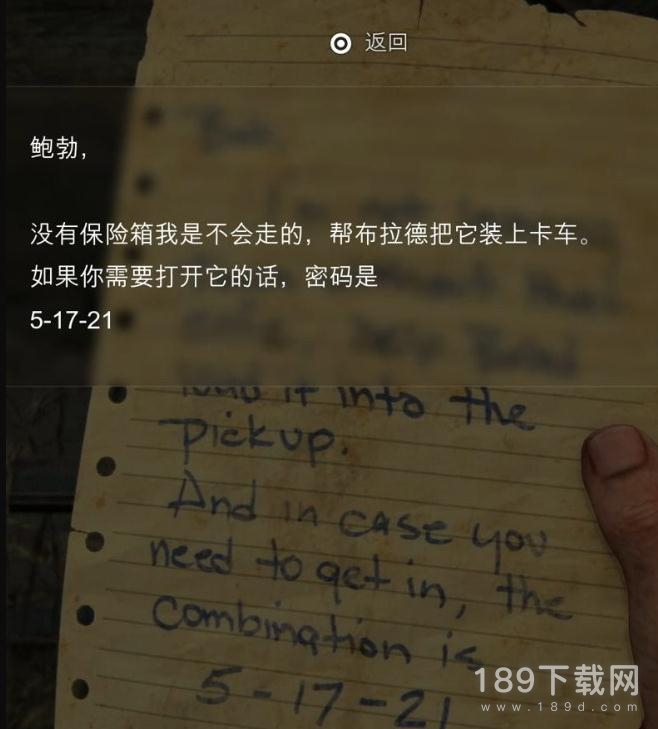 返回
鲍勃，
没有保险箱我是不会走的，帮布拉德把它装上卡车。
如果你需要打开它的话，密码是
5-17-21
load it into the
pickup.
And in case you
need to get in, the
combination is
5-17-21
189下载网
www.189d.com